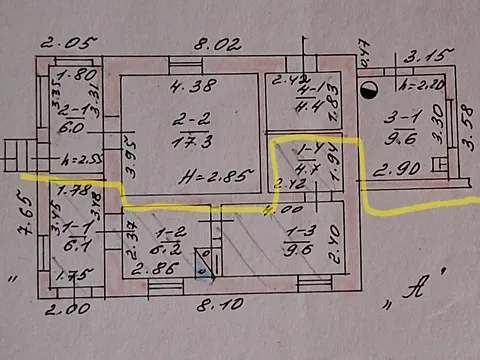 2.05
8.02
0.47
3.15
1.80
3.35
3.31
2-1
6.0
h=2.55
4.38
2-2
17.3
3.95
H=2.85
2.42
4-1
4.4
1.83
h=2.20
3-1
9.6
3.30
3.58
2.90
1-4
4.7
1.94
2.42
7.65
1.78
3.45
1-1
6.1
1.75
2.00
2.37
1-2
6.2
2.86
4.00
1-3
9.6
2.40
8.10
"
„А"